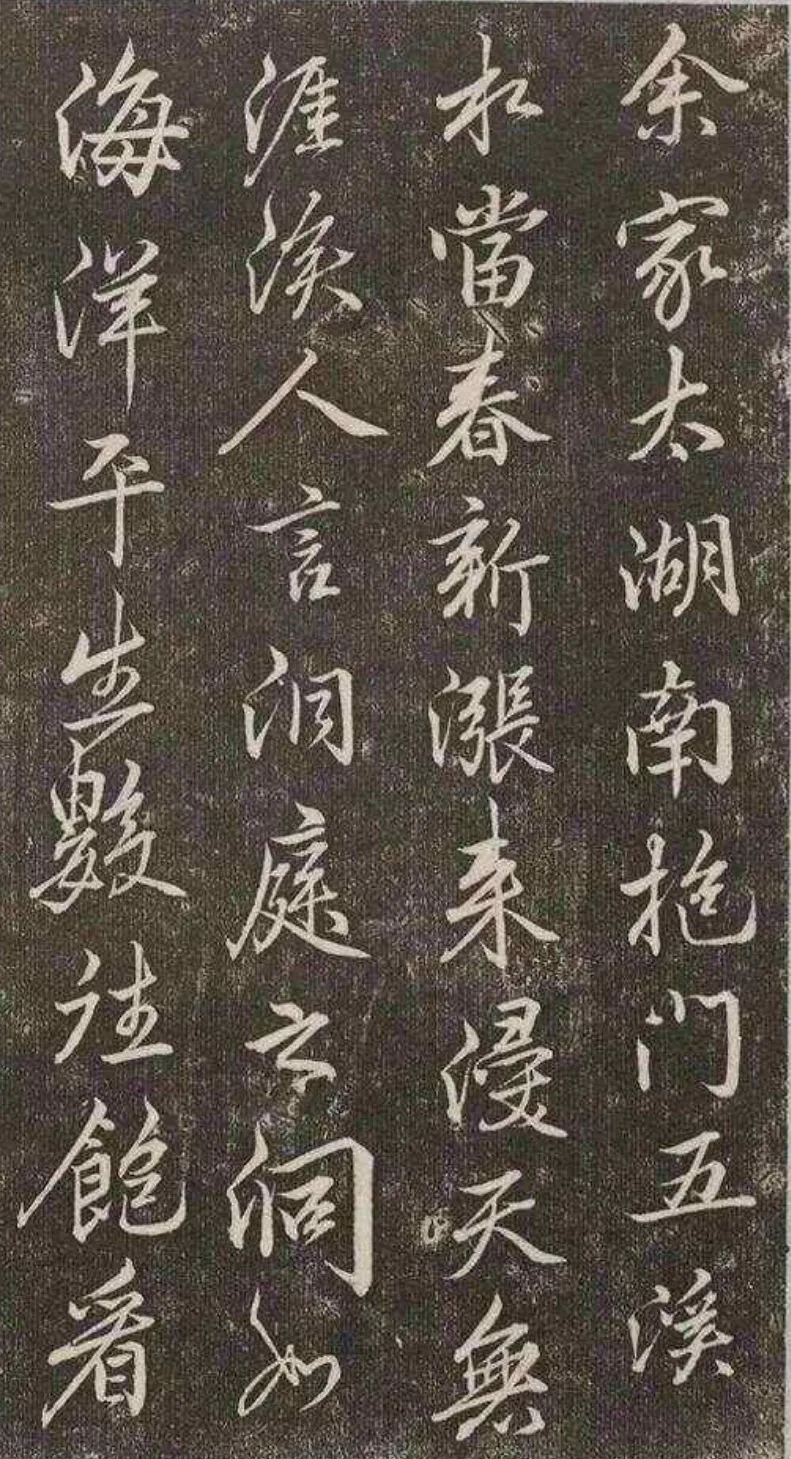 余家太湖南抱門五溪
水當春新漲来浸天無
涯涘人言洞庭洞如
海洋平生數往飽看